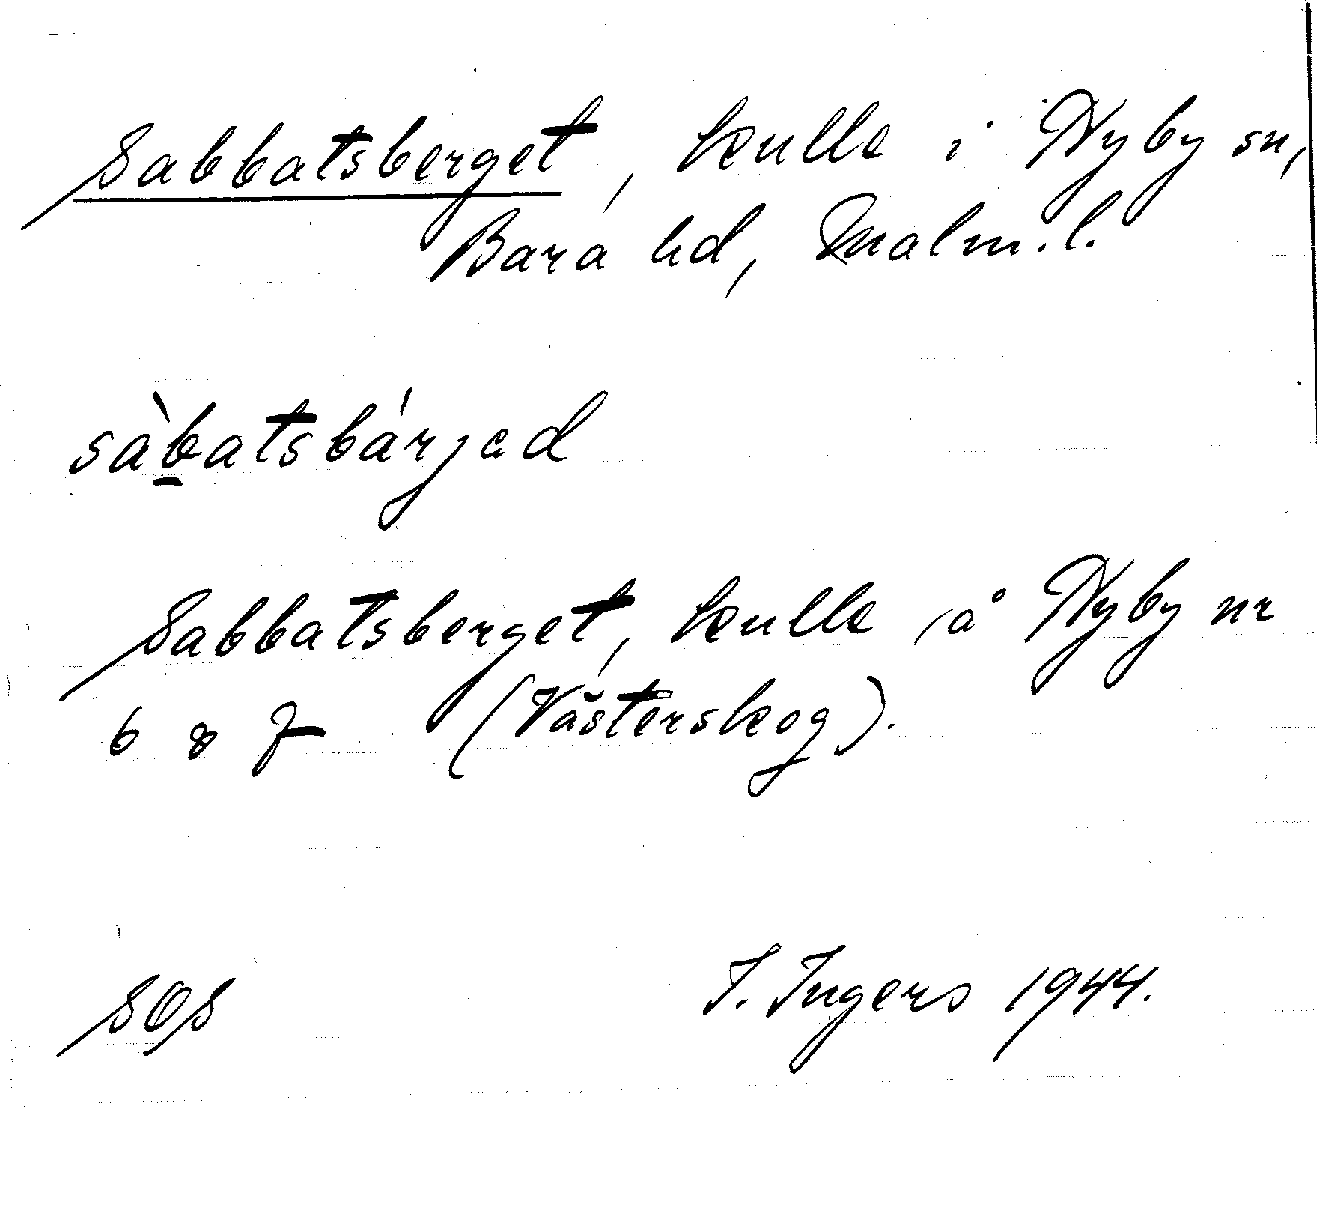 Sabbatsberget, kulle i Nyby sn,
Bara hd, Malm.l.
sàb̲atsbárjed
Sabbatsberget, kulle å Nyby nr
6 & 7 (Västerskog).
SOS I. Ingers 1944.